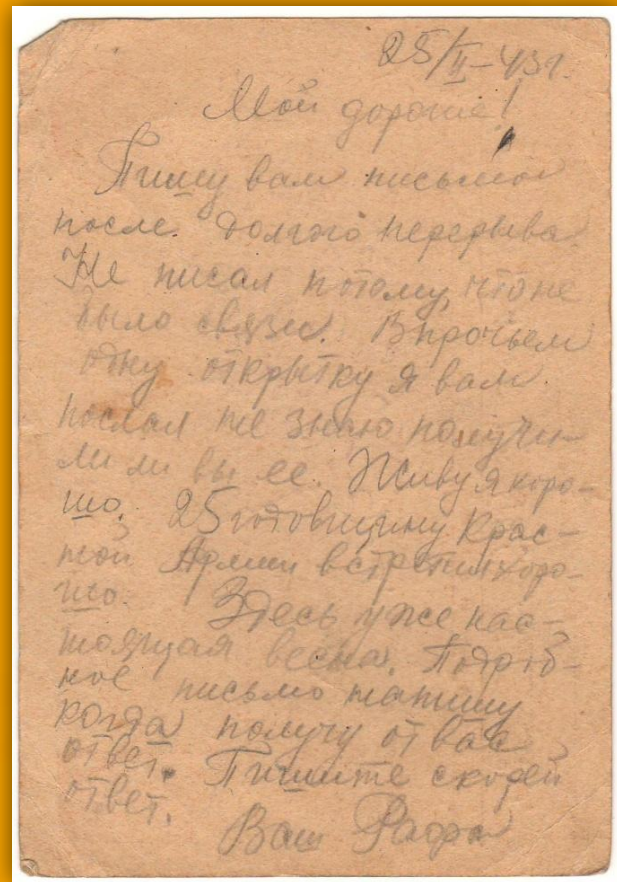 25/II-43г.
Мои дорогие!
Пишу вам письмо
после долгого перерыва.
Не писал потому, что не
было связи. Впрочем
одну открытку я вам
послал не знаю получи-
ли ли вы ее. Живу я хоро-
шо. 25 годовщину Крас-
ной Армии встретил хоро-
шо. Здесь уже нас-
тоящая весна. Подроб-
ное письмо напишу
когда получу от вас
ответ. Пишите скорей
ответ.
Ваш Рафа